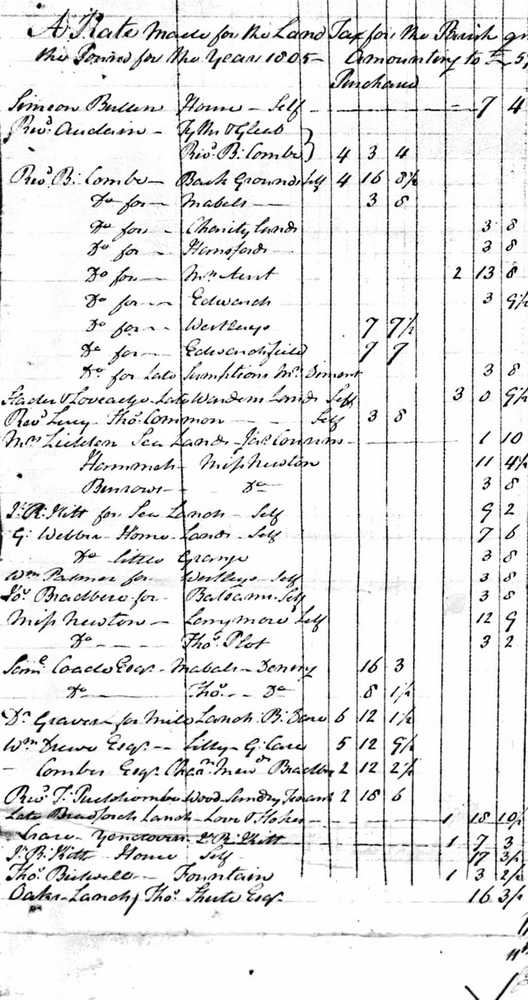 A Rate made for the Land Tax for the Parish
the Pound for the Year 1805 — amounting to £
Purchased
Simeon Bullen House — Self — 7 4
Revd. Audain — Tythe & Gleeb
Revd. B. Combe 4 3 4
Revd. B. Combe — Back Grounds Self 4 16 8½
Do for — Mabels — 3 8
Do for — Charity Lands 3 8
Do for — Hornsfords — 3 8
Do for — Mrs 2 13 8
Do for — Edwards 3 9½
Do for — Westleys 7 7½
Do for — Edwardsfield 7 7
Do for Late Sumptions Mr. 3 8
& Loveadge Late Wardens Lands Self 3 0 9½
Revd. Lucy Thos. Common — Self 3 8
Mrs Liddon Sea Lands Jas. — 1 10
Hammeh — Miss Newton 11 4½
Burrows — Do 3 8
J. R. Kitt for Sea Lands — Self 9 2
G. Webber Home Lands — Self 7 6
Do little Grange 3 8
Wm Palmer for Westleys — Self 3 8
Jos. Bradbere for — Balsams Self 3 8
Miss Newton — Larrymore Self 12 9
Do — Thos. Plot 3 2
Saml. Coade Esqr. — Mabals — Denery 16 3
Do — Thos. — Do 8 1½
Dr. Graves — for Mill Lands B. Dare 6 12 1½
Wm Drewe Esqr. — Lilly — G. Care 5 12 9½
— Combes Esqr. 2 12 2½
Revd. T. Puddicombe Wood Sundry Tenants 2 18 6
Late Bradford Lands — Love & Hoker — 1 18 10½
— Yonctown J. R. Kitt — 1 7 3
J. R. Kitt House Self 17 3½
Thos. Bidwell — Fountain 1 3 2½
Oake Lands, Thos. Shute Esqr. 16 3½